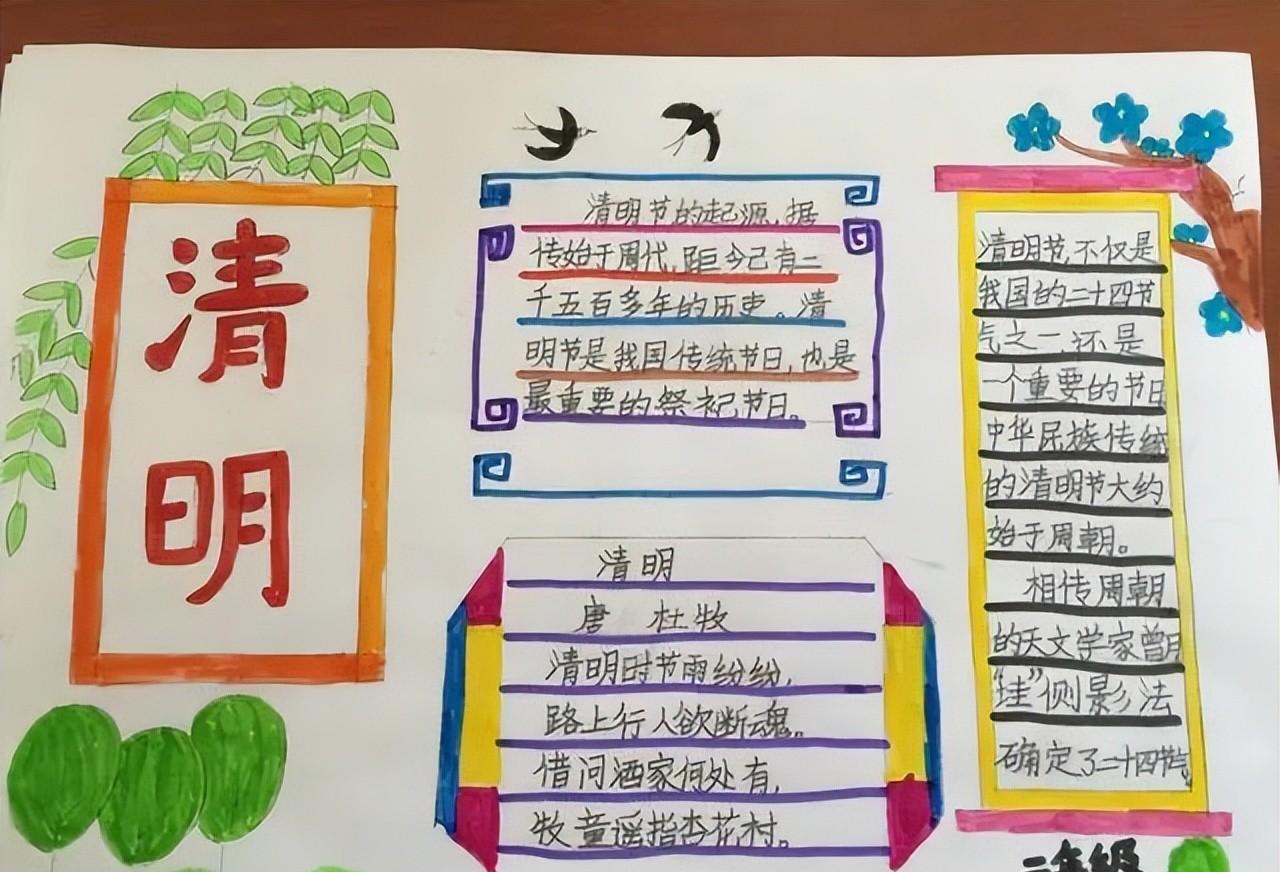 清
明
清明节的起源，据
传始于周代，距今已有二
千五百多年的历史。清
明节是我国传统节日，也是
最重要的祭祀节日。
清明
唐 杜牧
清明时节雨纷纷，
路上行人欲断魂。
借问酒家何处有，
牧童遥指杏花村。
清明节，不仅是
我国的二十四节
气之一，还是
一个重要的节日
中华民族传统
的清明节大约
始于周朝。
相传周朝
的天文学家曾用
"圭"侧影法
确定了二十四节气
二年级